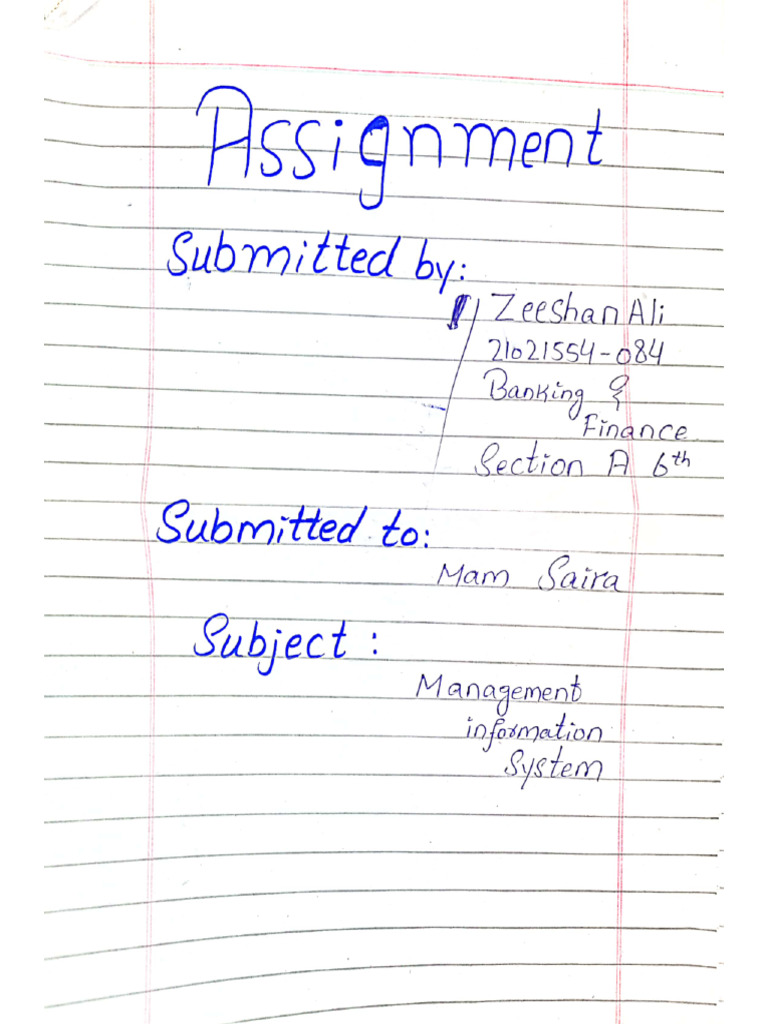 Assignment
Submitted by:
Zeeshan Ali
21021554-084
Banking &
Finance
Section A 6th
Submitted to:
Mam Saira
Subject :
Management
information
System